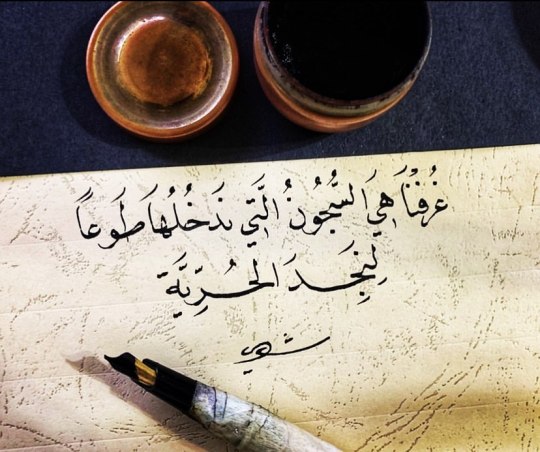 غُرفُنَا هِيَ السُّجُونُ الَّتِي نَدخُلُهَا طَوعاً
لِنَجِدَ الحُرِّيَّة